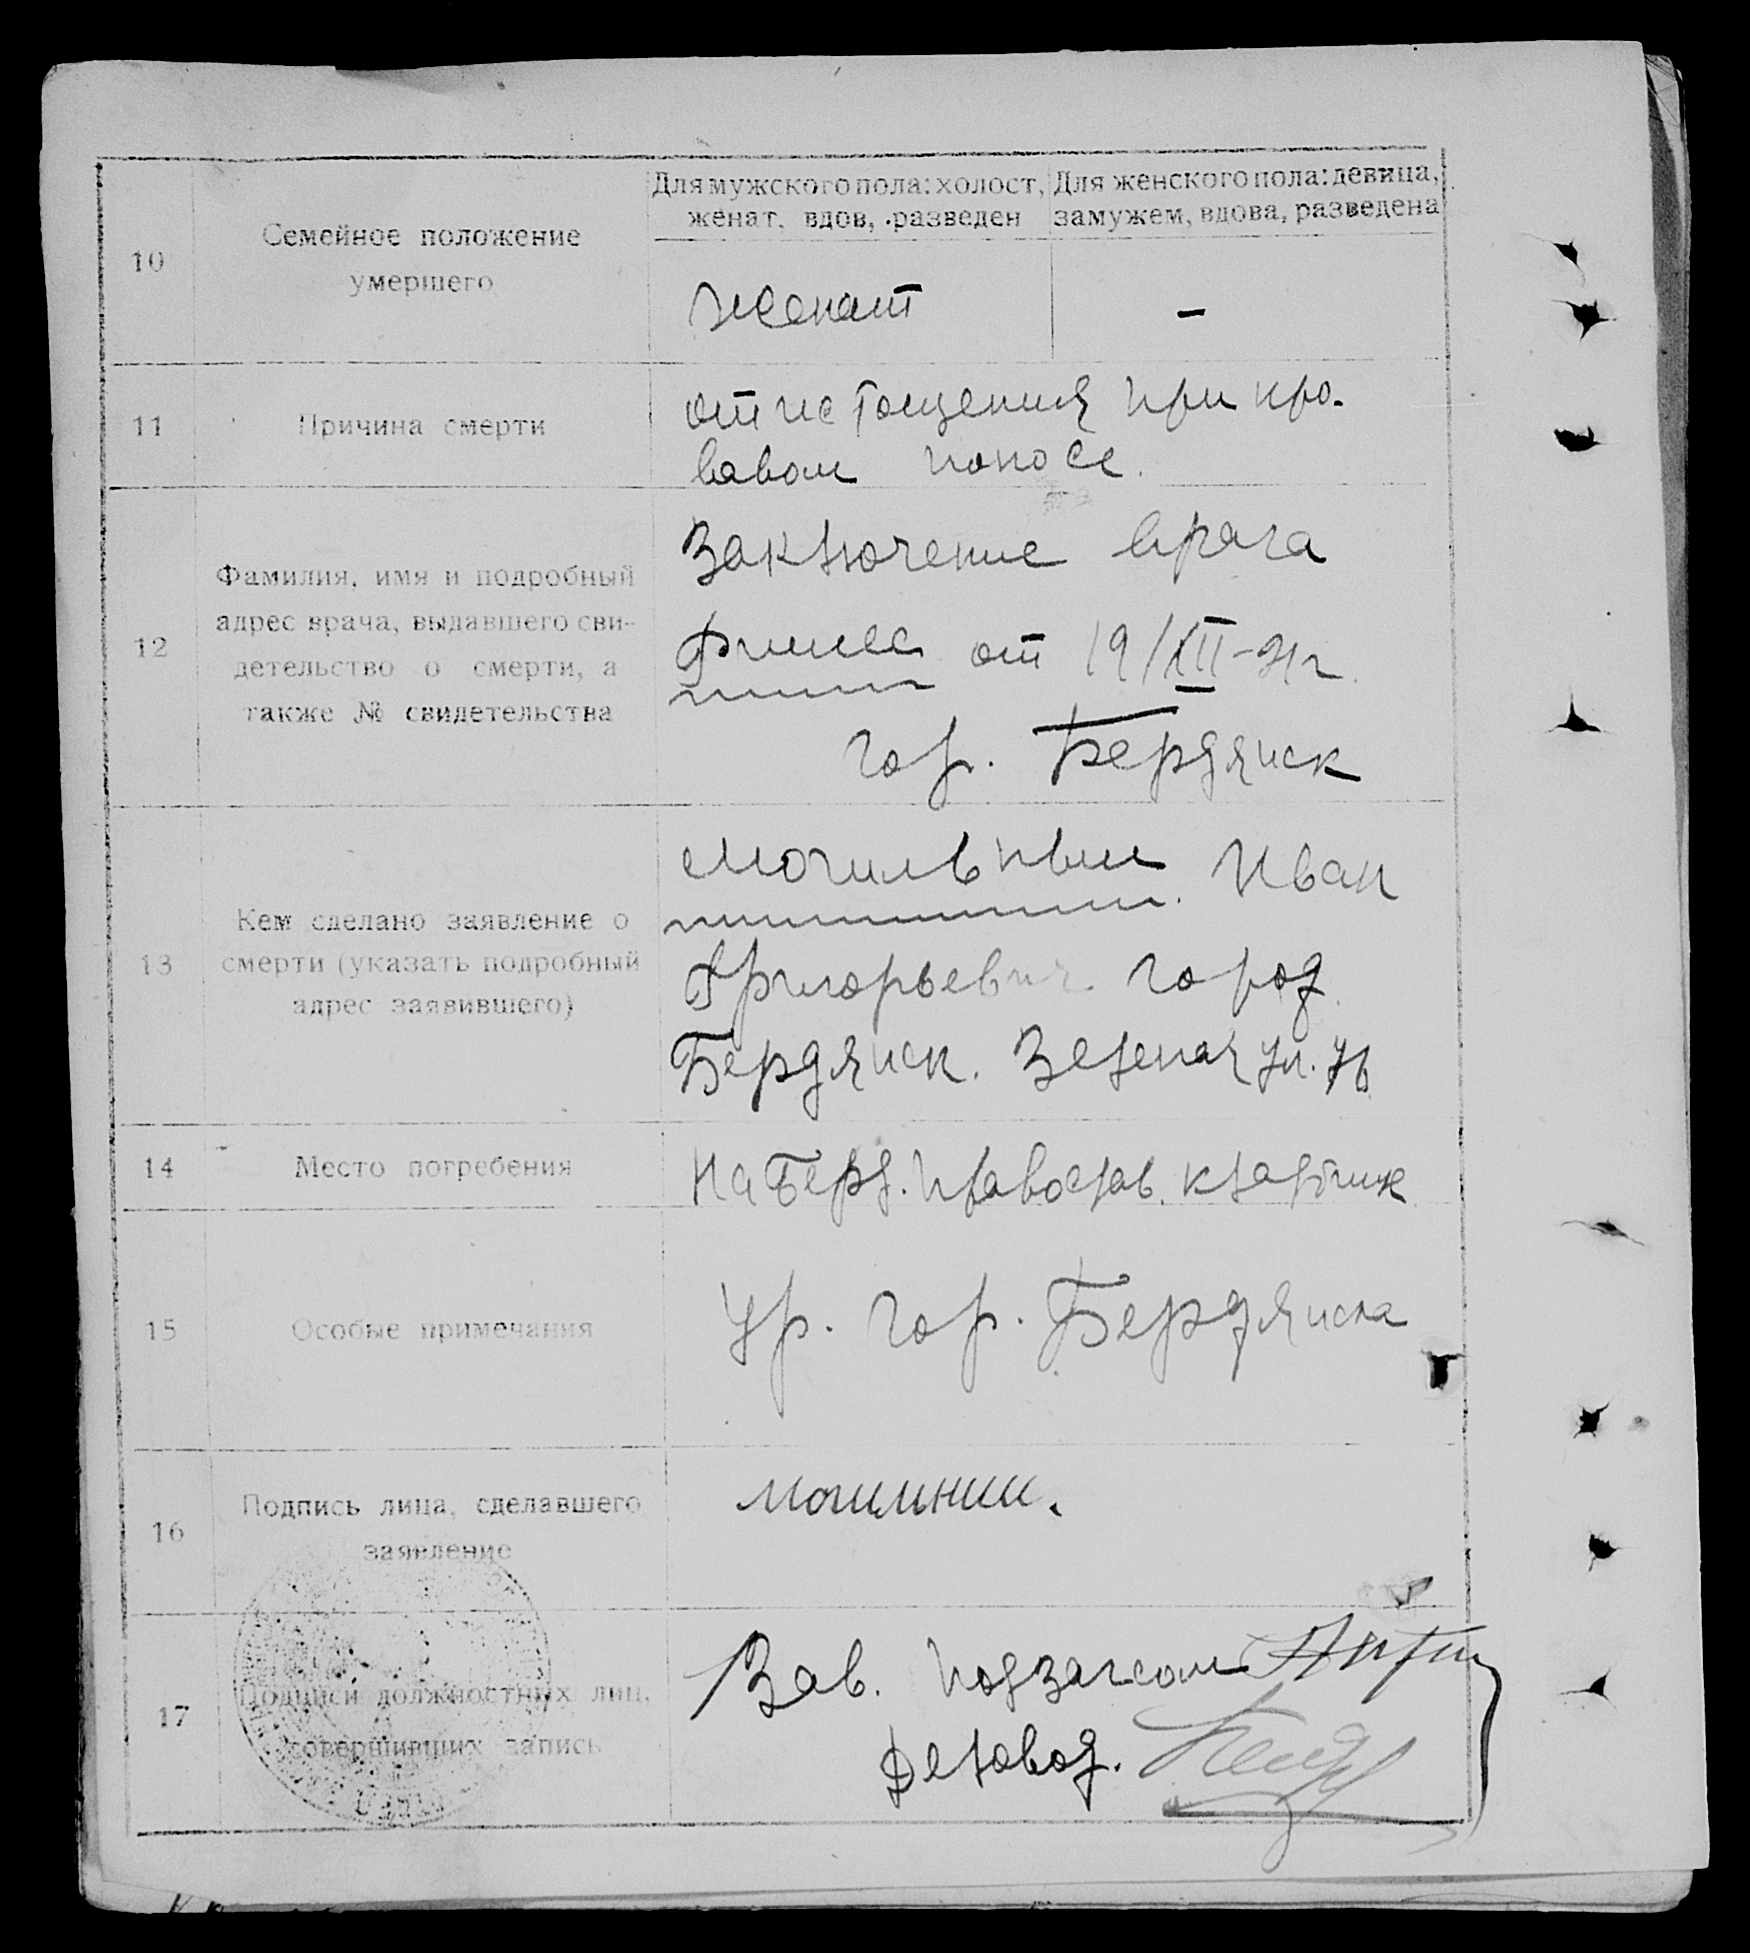 Для мужского пола: холост, женат, вдов, разведен
Для женского пола: девица, замужем, вдова, разведена
10
Семейное положение
умершего
женат
-
11
Причина смерти
от истощения при кро-
вавом поносе.
12
Фамилия, имя и подробный
адрес врача, выдавшего сви-
детельство о смерти, а
также № свидетельства
Заключение врача
от 19/XII-21г.
гор. Бердянск
13
Кем сделано заявление о
смерти (указать подробный
адрес заявившего)
Могильный Иван
Григорьевич. город
Бердянск. Зеленая ул.
14
Место погребения
На Берд. Православ. кладбище
15
Особые примечания
Ур. гор. Бердянска
16
Подпись лица, сделавшего
заявление
17
Подписи должностных лиц,
совершивших запись
Зав. подзагсом
Деловод.